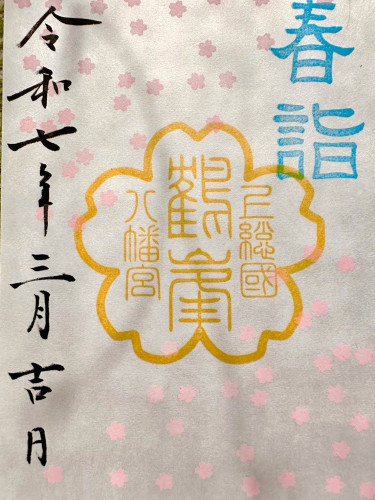 春詣
上総國
鶴峯
八幡宮
令和七年三月吉日